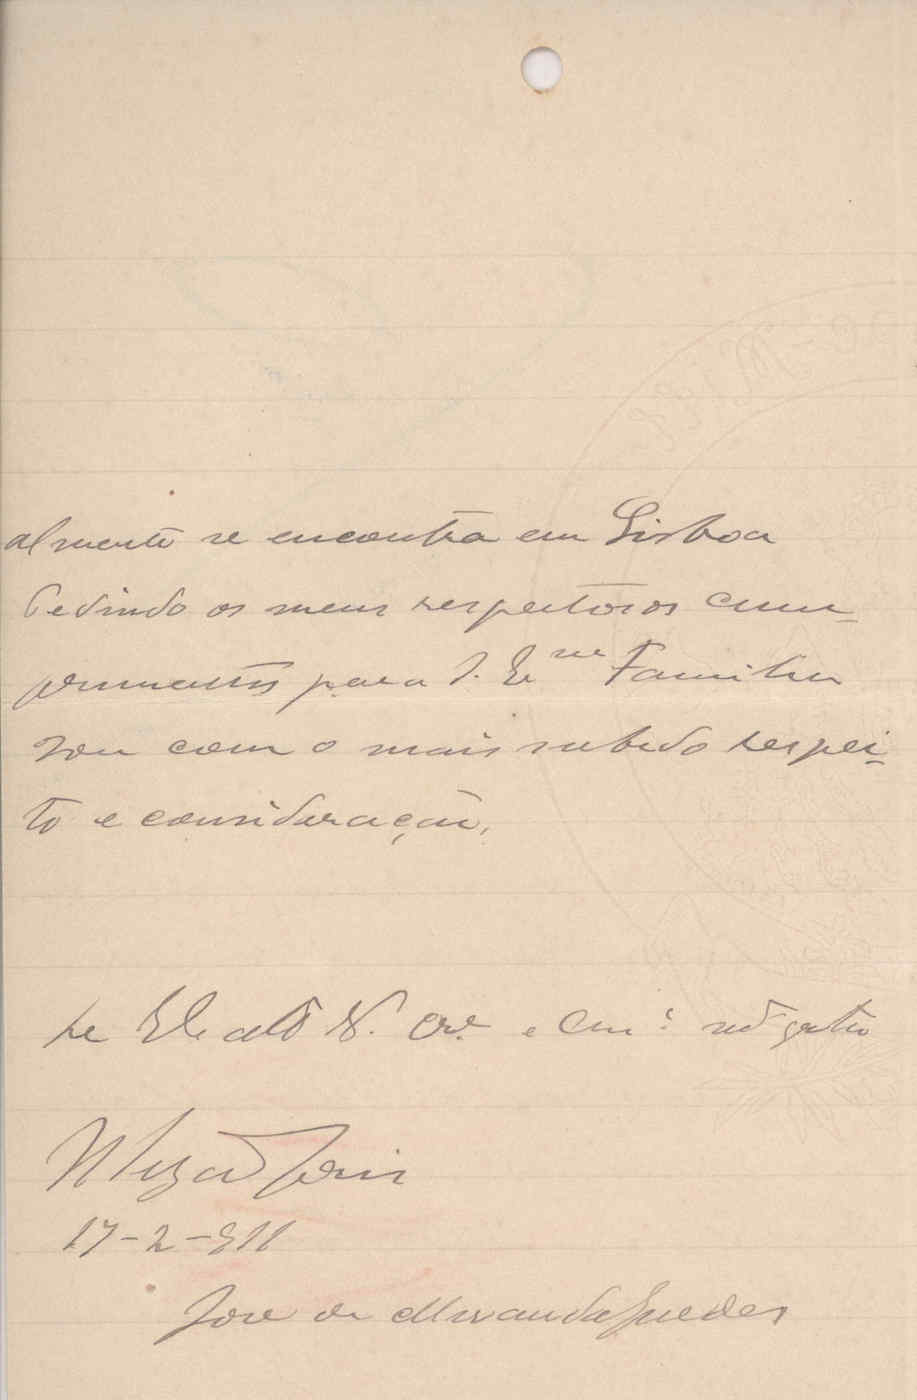 almente se encontra em Lisboa
Pedindo os meus respeitosos cum-
primentos para S. Ex.ma Familia
sou com o mais subido respei-
to e consideração,
De V. Ex. att.o V. Cr.o e Am.o
17-2-911
José de Miranda Guedes